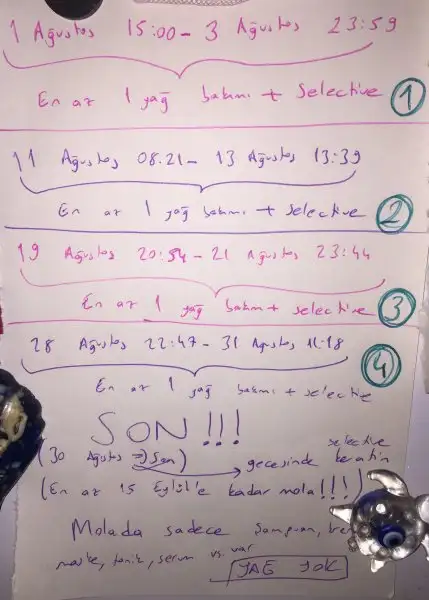 1 Ağustos 15:00 - 3 Ağustos 23:59
En az 1 yağ bakımı + Selective ①
11 Ağustos 08.21 - 13 Ağustos 13:39
En az 1 yağ bakımı + selective ②
19 Ağustos 20:54 - 21 Ağustos 23:44
En az 1 yağ bakımı + selective ③
28 Ağustos 22:47 - 31 Ağustos 11:18
En az 1 yağ bakımı + selective ④
SON!!!
(30 Ağustos => Son) → gecesinde selective keratin
(En az 15 Eylül'e kadar mola!!!)
Molada sadece şampuan,
maske, tonik, serum vs. var
YAĞ YOK